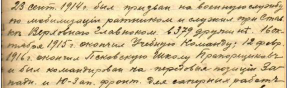 23 сент. 1914 г. был призван на военную службу
по мобилизации ратником и служил при Ставке
Верховного Главноком. в 379 дружине. 16 сен-
тября 1915 г. окончил Учебную Команду, 12 февр.
1916 г. окончил Псковскую Школу Прапорщиков
и был командирован на передовые позиции За-
падн. и Ю-Зап. фронт. для саперных работ